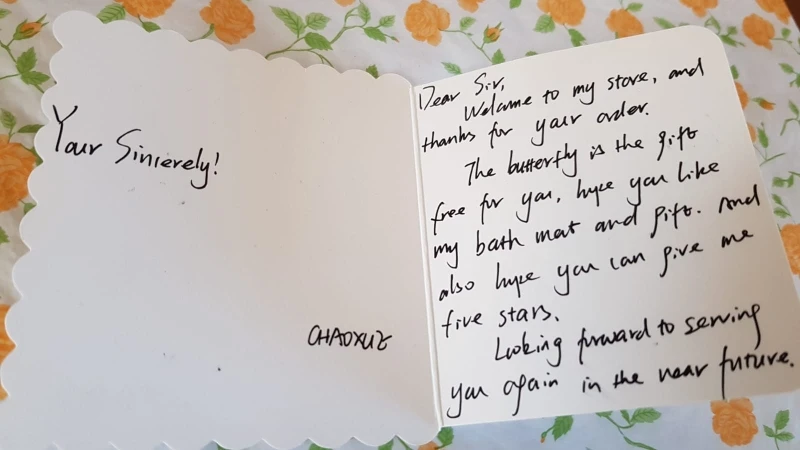 Dear Sir,
Welcome to my store, and
thanks for your order.
The butterfly is the gift
free for you, hope you like
my bath mat and gift. And
also hope you can give me
five stars.
Looking forward to serving
you again in the near future.
Your Sincerely!
CHAOXUE